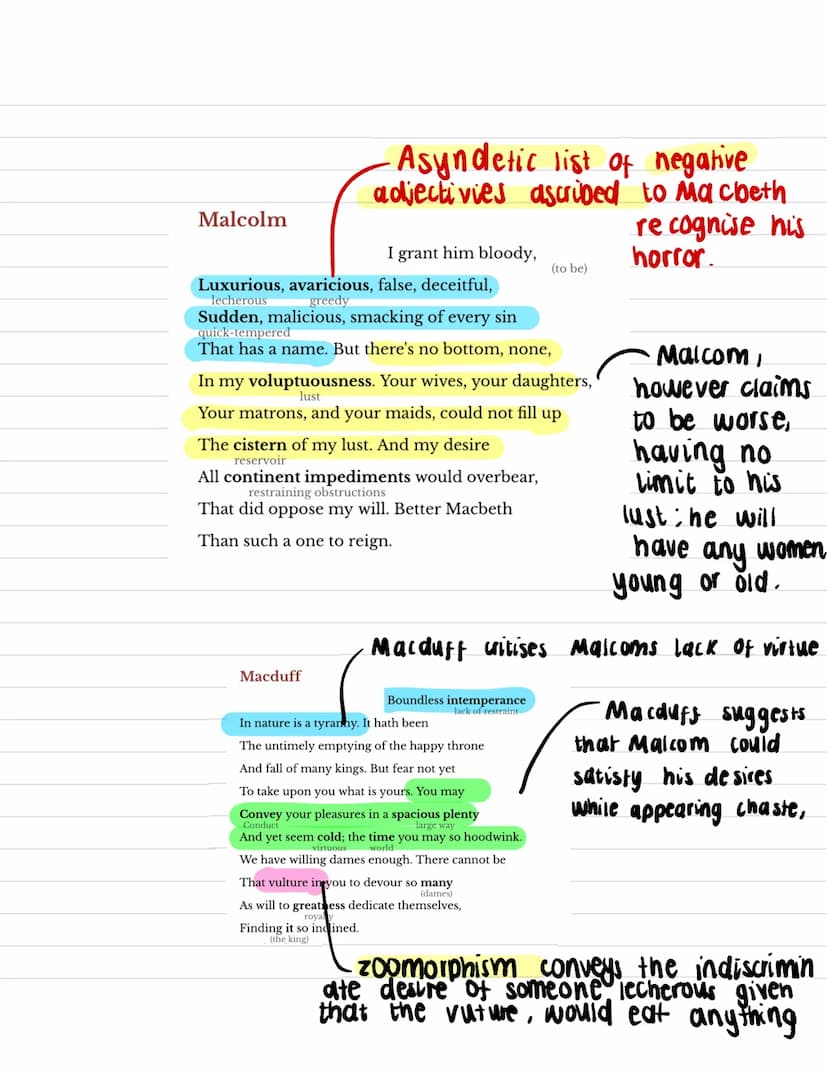 Asyndetic list of negative
adjectivies ascribed to Macbeth
recognise his
horror.
Malcolm
I grant him bloody,
(to be)
Luxurious, avaricious, false, deceitful,
lecherous greedy
Sudden, malicious, smacking of every sin
quick-tempered
That has a name. But there's no bottom, none,
In my voluptuousness. Your wives, your daughters,
lust
Your matrons, and your maids, could not fill up
The cistern of my lust. And my desire
reservoir
All continent impediments would overbear,
restraining obstructions
That did oppose my will. Better Macbeth
Than such a one to reign.
Malcom,
however claims
to be worse,
having no
limit to his
lust; he will
have any women
young or old.
Macduff critises Malcoms lack of virtue
Macduff
Boundless intemperance
lack of restraint
In nature is a tyranny. It hath been
The untimely emptying of the happy throne
And fall of many kings. But fear not yet
To take upon you what is yours. You may
Convey your pleasures in a spacious plenty
Conduct large way
And yet seem cold; the time you may so hoodwink.
virtuous world
We have willing dames enough. There cannot be
That vulture in you to devour so many
(dames)
As will to greatness dedicate themselves,
royalty
Finding it so inclined.
(the king)
Macduff suggests
that Malcom could
satisty his desires
while appearing chaste,
zoomorphism conveys the indiscrimin
ate desire of someone lecherous given
that the vuture, would eat anything